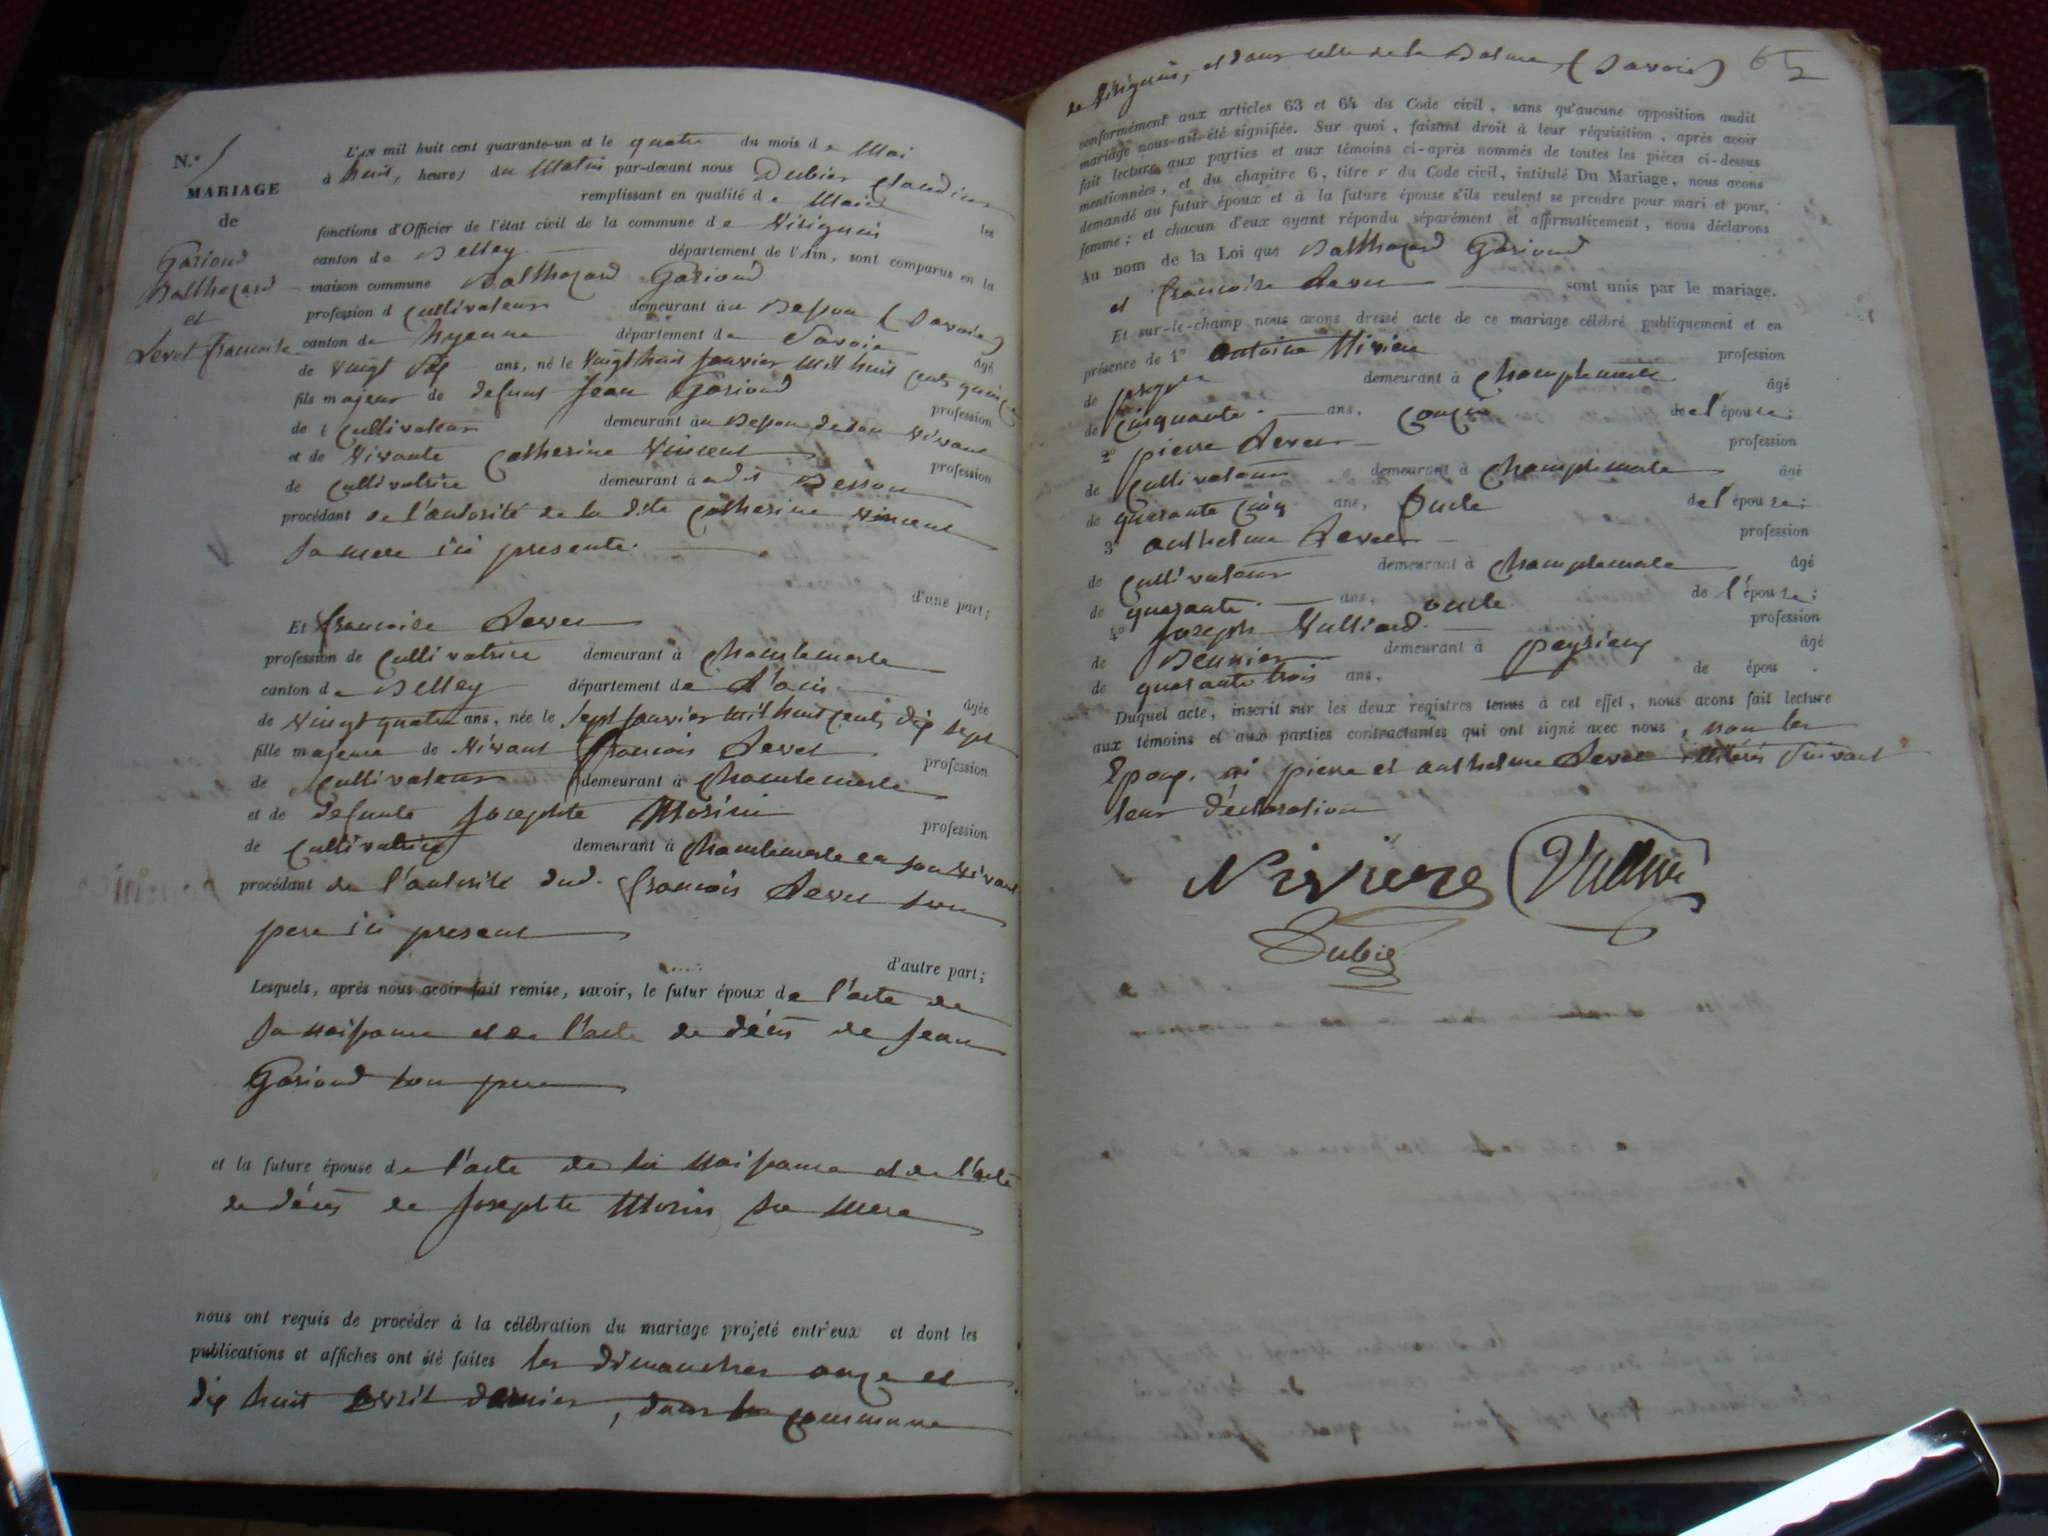 N.º
MARIAGE
de
Garioud
Balthazard
et
Levet françoise
L'AN mil huit cent quarante-un et le quatre du mois de Mai
à huit, heures du Matin par-devant nous Dubier Claudius
remplissant en qualité de Maire les
fonctions d'Officier de l'état civil de la commune de Virignin
canton de Belley département de l'Ain, sont comparus en la
maison commune Balthazard Garioud
profession d cultivateur demeurant au Besson (Savoie)
canton de hyenne département de Savoie âgé
de Vingt six ans, né le Vingt huit janvier mil huit cents quinze
fils majeur de defunt Jean Garioud profession
de cultivateur demeurant au Besson de son Vivant
et de Vivante Catherine Vincent profession
de cultivatrice demeurant à udit Besson
procédant de l'autorité de la dite Catherine Vincent
sa mere ici presente.
d'une part;
Et françoise Levet
profession de cultivatrice demeurant à Chantemerle
canton de Belley département de L'ain
de Vingt quatre ans, née le sept janvier mil huit cents dix sept âgée
fille majeure de Vivant françois Levet profession
de cultivateur demeurant à Chantemerle
et de defunte Josephte Morin profession
de cultivatrice demeurant à Chantemerle en son vivant
procédant de l'autorité dud. françois Levet son
pere ici present
d'autre part;
Lesquels, après nous avoir fait remise, savoir, le futur époux de l'acte de
sa naissance et de l'acte de décès de Jean
Garioud son pere
et la future épouse de l'acte de sa naissance et de l'acte
de décès de Josephte Morin sa mere
nous ont requis de procéder à la célébration du mariage projeté entr'eux et dont les
publications et affiches ont été faites les dimanches onze et
dix huit avril dernier, dans la commune
65
de Virignin, et dans celle de la Balme, (Savoie)
conformément aux articles 63 et 64 du Code civil, sans qu'aucune opposition audit
mariage nous ait été signifiée. Sur quoi, faisant droit à leur réquisition, après avoir
fait lecture aux parties et aux témoins ci-après nommés de toutes les pièces ci-dessus
mentionnées, et du chapitre 6, titre v du Code civil, intitulé Du Mariage, nous avons
demandé au futur époux et à la future épouse s'ils veulent se prendre pour mari et pour
femme; et chacun d'eux ayant répondu séparément et affirmativement, nous déclarons
Au nom de la Loi que Balthazard Garioud
et françoise Levet sont unis par le mariage.
Et sur-le-champ nous avons dressé acte de ce mariage célébré publiquement et en
présence de 1º Antoine profession
de demeurant à Chantemerle âgé
de cinquante. ans, de l'épouse;
2º pierre Levet profession
de cultivateur demeurant à Chantemerle âgé
de quarante cinq ans, Oncle de l'épouse;
3º anthelme Levet profession
de cultivateur demeurant à Chantemerle âgé
de quarante. ans, oncle de l'épouse;
4º Joseph Vulliard. profession
de Meunier demeurant à peyrieux âgé
de quarante trois ans, de épou .
Duquel acte, inscrit sur les deux registres tenus à cet effet, nous avons fait lecture
aux témoins et aux parties contractantes qui ont signé avec nous, non les
Epoux, ni pierre et anthelme Levet illitérés suivant
leur déclaration
Dubier